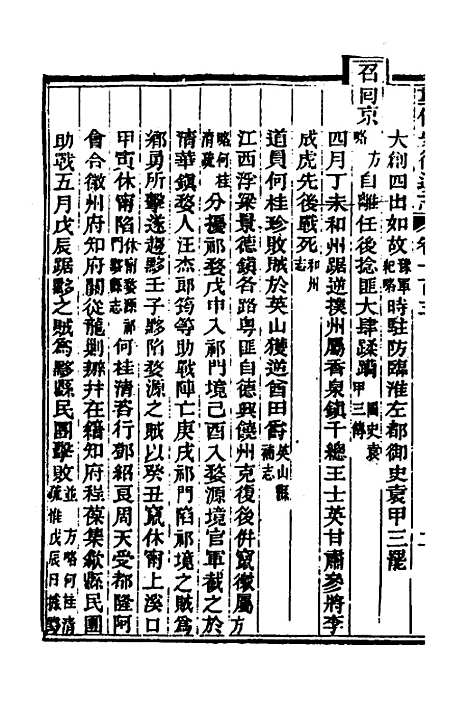 大創四出如故豫軍紀略時駐防臨淮左都御史袁甲三罷
召回京方略自離任後捻匪大肆蹂躪國史袁甲三傳
四月丁未和州踞逆撲州屬香泉鎮千總王士英甘肅參將李
成虎先後戰死和州志
道員何桂珍敗賊於英山獲逆酋田　英山縣補志
江西浮梁景德鎮各路粵匪自德興饒州克復後併竄徽屬方
略何桂清疏分擾祁婺戊申入祁門境己酉入婺源境官軍截之於
清華鎮婺人汪杰郎筠等助戰陣亡庚戌祁門陷祁境之賊為
鄉勇所擊遂趨黟壬子黟陷婺源之賊以癸丑竄休甯上溪口
甲寅休甯陷休甯婺源祁門黟縣志何桂清咨行鄧紹良周天受都隆阿
會合徽州府知府關從龍剿辦幷在籍知府程葆集歙縣民團
助戰五月戊辰踞黟之賊為黟縣民團擊敗並方略何桂清疏惟戊辰日據黟